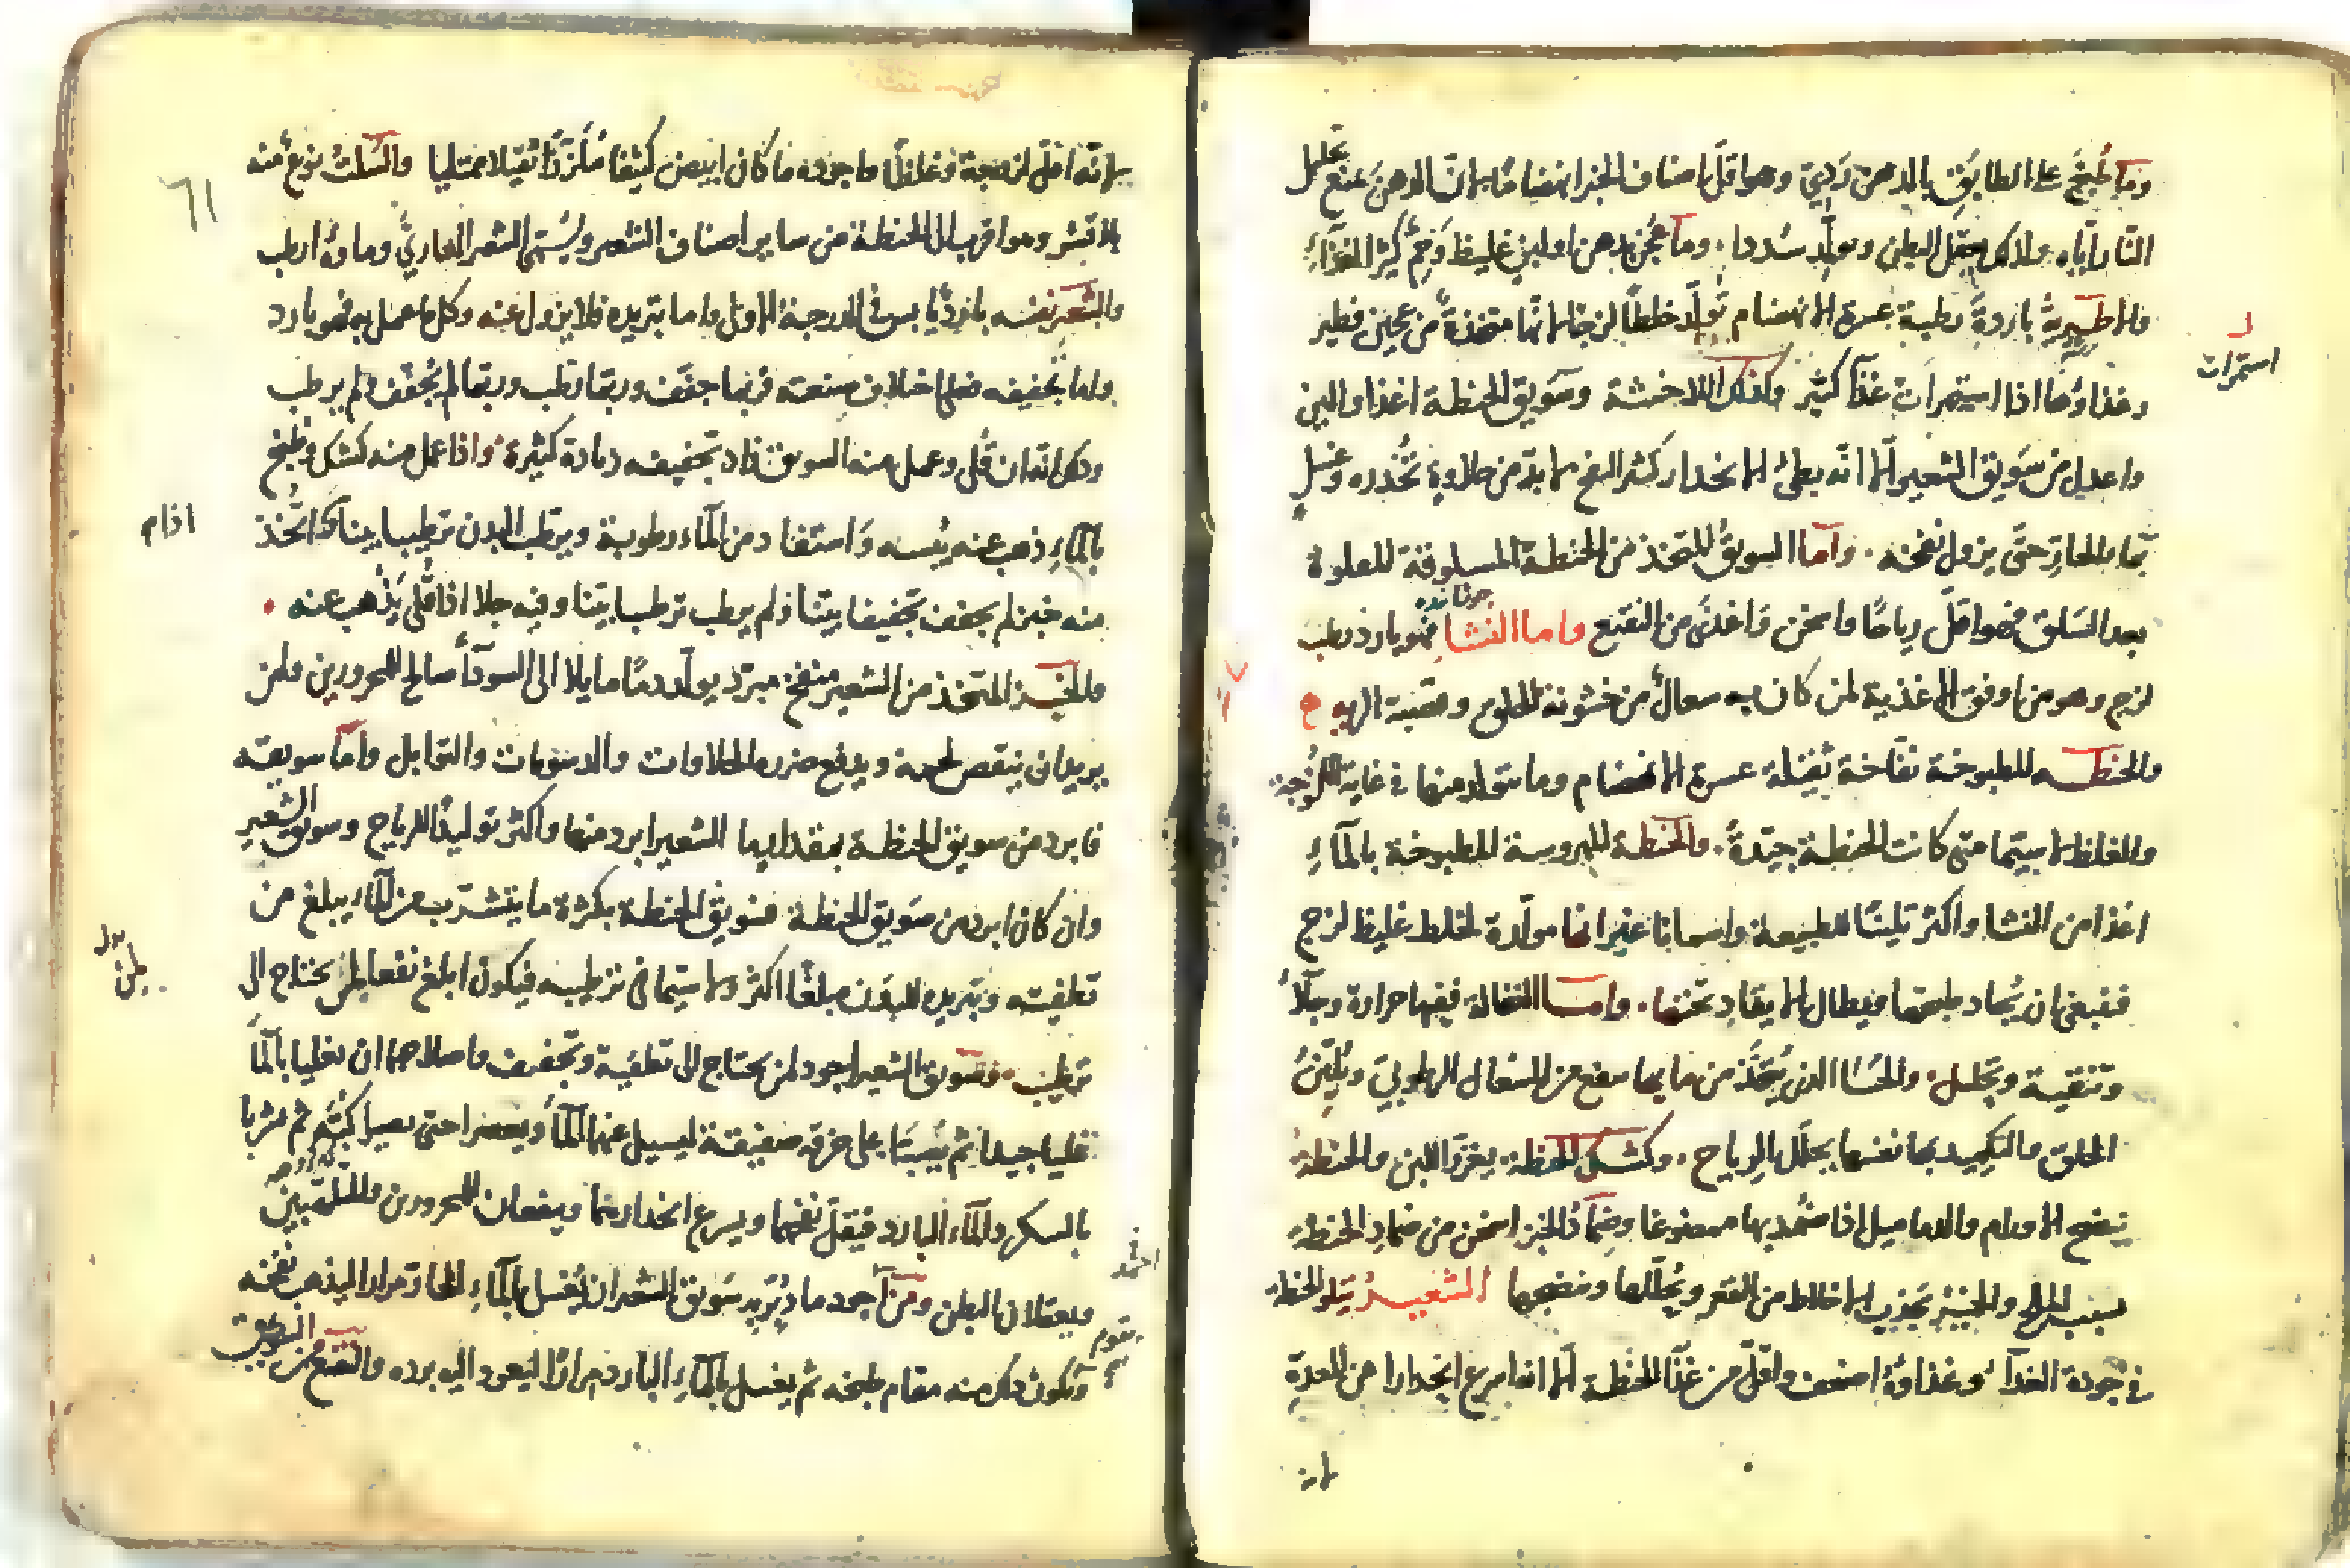 وما طبخ على الطابق بالدهن ردي وهو اقل اصناف الخبز انهضاما لان الدهن يمنع تحليل
النار اياه ولذلك يعقل البطن ويولد سددا وما عجن بدهن او لبن غليظ وخم كثير الغذاء
والاطرية باردة رطبة عسرة الانهضام تولد خلطا لزجا لانها متخذة من عجين فطير
استمرات
وغذاؤها اذا استمرات غذا كثير وكذلك اللاخشة وسويق الحنطة اغذا والين
واعدل من سويق الشعير الا انه بطئ الانحدار كثير النفخ لا بد من حلاوة تحدره وغسل
بما بالحار حتى يزول نفخه واما السويق المتخذ من الحنطة المسلوقة المقلوة
بعد السلق فهو اقل رياحا واسخن واغذى من النقيع واما النشا فهو بارد رطب
لزج وهو من اوفق الاغذية لمن كان به سعال من خشونة الحلق وقصبة الريه
والحنطه المطبوخة نفاخة ثقيلة عسرة الانهضام وما يتولد منها في غاية اللزوجة
والغلظ لا سيما متى كانت الحنطة جيدة والحنطة المهروسة المطبوخة بالماء
اغذا من النشا واكثر تليينا للطبيعة واسمانا غير انها مولدة لخلط غليظ لزج
فينبغي ان يجاد طبخها ويطال الايقاد تحتها واما النخالة ففيها حرارة وجلاء
وتنقية وتحليل والحسا الذي يتخذ من مايها ينفع من السعال الرطوبي ويلين
الحلق والتكميد بها نفسها يحلل الرياح وكشك الحنطة يغزر اللبن والحنطة
ينضج الاورام والدماميل اذا ضمد بها ممضوغا وضماد الخبز اسخن من ضماد الحنطة
بسبب الملح والخبز يجذب الاخلاط من القعر ويحللها وينضجها الشعير يتلو الحنطة
في جودة الغذاء وغذاؤه اضعف واقل من غذا الحنطة الا انه اسرع انحدارا من المعدة
لانه
٦١
لانه اقل لزوجة وغلظا واجوده ما كان ابيض كثيفا ملززا ثقيلا ممتليا والسلت نوع منه
بلا قشر وهو اقرب الى الحنطة من ساير اصناف الشعير ويسمى الشعير العاري وماؤه ارطب
والشعير نفسه بارد يابس في الدرجة الاولى واما تبريده فلا يزول عنه وكل ما عمل به فهو بارد
واما تجفيفه فعلى اختلاف صنعته فربما جفف وربما رطب وربما لم يجفف ولم يرطب
وذلك انه ان قلي وعمل منه السويق زاد تجفيفه زيادة كثيرة واذا عمل منه كشك وطبخ
بالماء ذهب عنه يبسه واستفاد من الماء رطوبة ويرطب البدن ترطيبا بينا واذا اتخذ
منه خبز لم يجفف تجفيفا بينا ولم يرطب ترطيبا بينا وفيه جلا اذا قلي يذهب عنه
والخبز المتخذ من الشعير منفخ مبرد يولد دما مايلا الى السودآء صالح للمحرورين ولمن
يريد ان ينقص لحمه ويدفع ضرره الحلاوات والدسومات والتوابل واما سويقه
فابرد من سويق الحنطة بمقدار ما الشعير ابرد منها واكثر توليدا للرياح وسويق الشعير
وان كان ابرد من سويق الحنطة فسويق الحنطة بكثرة ما يتشرب من الماء يبلغ من
تطفيته وتبريده للبدن مبلغا اكثر ولا سيما في ترطيبه فيكون ابلغ نفعا لمن يحتاج الى
ترطيب وسويق الشعير اجود لمن يحتاج الى تطفية وتجفيف واصلاحهما ان يغليا بالماء
غليا جيدا ثم يصبا على خرقة صفيقة ليسيل عنها الماء ويعصرا حتى يصيرا كبة ثم يشربا
بالسكر والماء البارد فيقل نفخهما ويسرع انحدارهما وينفعان المحرورين والملتهبين
ويعقلان البطن ومن اجود ما دبر به سويق الشعير ان يغسل بالماء الحار مرارا ليذهب نفخه
ويكون ذلك منه مقام طبخه ثم يغسل بالماء البارد مرارا ليعود اليه برده والنقيع من السويق